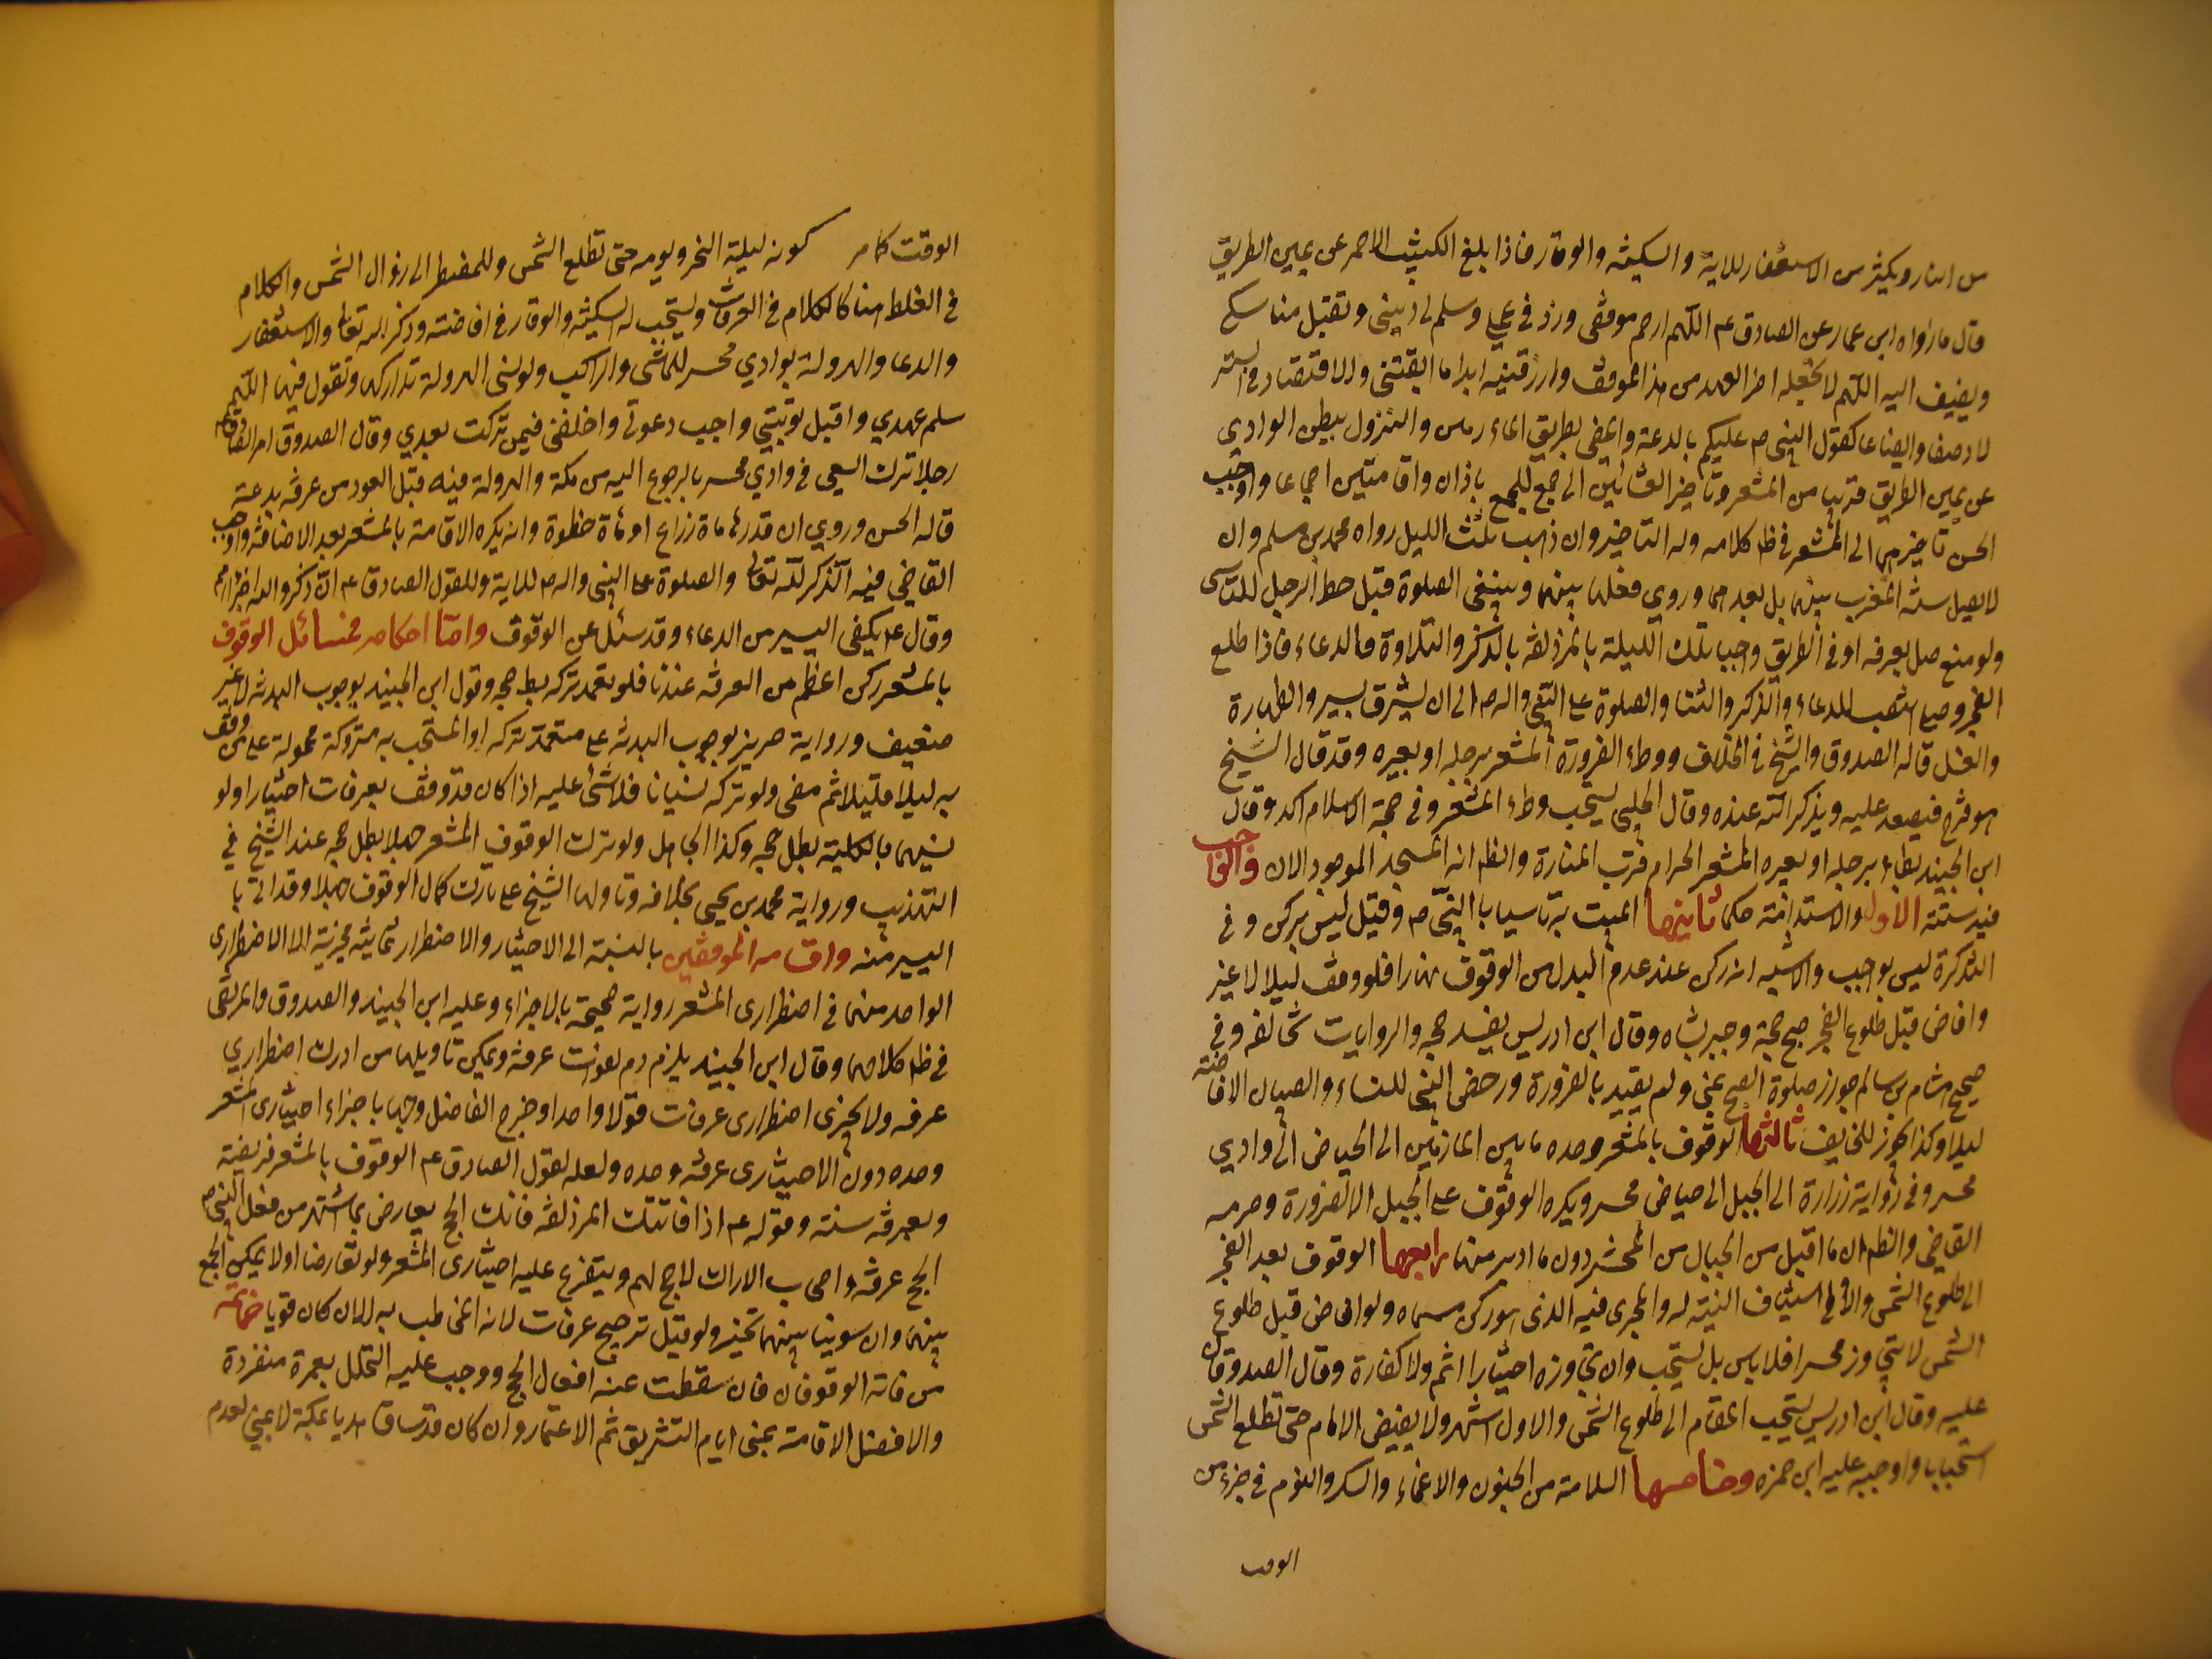 من النار ويكثر من الاستغفار للاية والسكينه والوقار فاذا بلغ الكثيب الاحمر عن يمين الطريق
قال ما رواه ابن عمار عن الصادق عم اللهم ارحم موقفى وزد في عملي وسلم لي ديني وتقبل مناسكي
ويضيف اليه اللهم لا تجعله اخر العهد من هذا الموقف وارزقنيه ابدا ما ابقيتنى والاقتصاد في السير
عليكم بالدعة والمضى بطريق المازمين والنزول ببطن الوادي
عن يمين الطريق قريبا من المشعر وتاخير العشائين الى جمع للجمع باذان واقامتين اجماعا واوجب
الحسن تاخيرهما الى المشعر في ظ كلامه وله التاخير وان ذهب ثلث الليل رواه محمد بن مسلم وان
لا يصلى سنة المغرب بينهما بل بعدهما وروي فعلها بينهما وينبغى الصلوة قبل حط الرحل للتاسى
ولو منع صلى بعرفه او في الطريق واحياء تلك الليلة بالمزدلفة بالذكر والتلاوة والدعاء فاذا طلع
الفجر وصلى انتصب للدعاء والذكر والثنا والصلوة على النبى واله ص الى ان يشرق ثبير والطهارة
والغسل قاله الصدوق والشيخ في الخلاف ووطء الضرورة المشعر برجله او بعيره وقد قال الشيخ
هو قزح فيصعد عليه ويذكر الله عنده وقال الحلبى يستحب وطء المشعر وفي حجة الاسلام اكد وقال
ابن الجنيد يطاء برجله او بعيره المشعر الحرام قرب المنارة والظ انه المسجد الموجود الان والواجب
فيه ستة الاول والاستدامة حكما ثانيها المبيت به تاسيا بالنبى ص وقيل ليس بركن وفي
التذكرة ليس بواجب والاشبه انه ركن عند عدم البدل من الوقوف نهارا فلو وقف ليلا لا غير
وافاض قبل طلوع الفجر صح حجة وجبر بشاه وقال ابن ادريس يفسد حجه والروايات تخالفه وفي
صحيح هشام بن سالم جواز صلوة الصبح بمنى ولم يقيد بالضرورة ورخص النبى للنساء والصبيان الافاضة
ليلا وكذا يجوز للخايف ثالثها الوقوف بالمشعر وحده ما بين المازمين الى الحياض الى وادي
محسر وفي رواية زرارة الى الجبل الى حياض محسر ويكره الوقوف على الجبل الا لضرورة وحرمه
القاضي والظ ان ما اقبل من الجبال من المشعر دون ما ادبر منها رابعها الوقوف بعد الفجر
الى طلوع الشمس والاولى استيناف النية له والمجزى فيه الذى هو ركن مسماه ولو افاض قبل طلوع
الشمس لا يتجاوز محسرا فلا باس بل يستحب وان تجاوزه اختيارا اثم ولا كفارة وقال الصدوقان
عليه وقال ابن ادريس يستحب المقام الى طلوع الشمس والاول اشهر ولا يفيض الامام حتى تطلع الشمس
استحبابا واوجبه عليه ابن حمزه وخامسها السلامة من الجنون والاغماء والسكر والنوم في جزء من
الوقت
الوقت كما مر كونه ليلة النحر ويومه حتى تطلع الشمس وللمضطر الى زوال الشمس والكلام
في الغلط هنا كالكلام في العرفات ويستحب له السكينة والوقار في افاضته وذكر الله تعالى والاستغفار
والدعا والهرولة بوادي محسر للماشى والراكب ولو نسى الهرولة تداركها وتقول فيها اللهم
سلم عهدي واقبل توبتي واجب دعوتي واخلفنى فيمن تركت بعدي وقال الصدوق امر الصادق عم
رجلا ترك السعى في وادي محسر بالرجوع اليه من مكة والهرولة فيه قبل العود من عرفه بدعة
قاله الحسن وروي ان قدرها ماة ذراع او ماة خطوة وانه يكره الاقامة بالمشعر بعد الافاضة واوجب
القاضي فيه الذكر لله تعالى والصلوة على النبى واله ص للاية ولقول الصادق عم
وقال عم يكفى اليسير من الدعاء وقد سئل عن الوقوف واما احكامه فمسائل الوقوف
بالمشعر ركن اعظم من العرفة عندنا فلو تعمد تركه بطل حجه وقول ابن الجنيد بوجوب البدنة لا غير
ضعيف ورواية حريز بوجوب البدنة على متعمد تركه او المستخف به متروكة محمولة على من وقف
به ليلا قليلا ثم مضى ولو تركه نسيانا فلا شئ عليه اذا كان قد وقف بعرفات اختيارا ولو
نسيهما بالكلية بطل حجه وكذا الجاهل ولو ترك الوقوف المشعر جهلا بطل حجه عند الشيخ في
التهذيب ورواية محمد بن يحيى بخلافه وتاولها الشيخ على تارك كمال الوقوف جهلا وقد اتى با
ليسير منه واقسام الموقفين بالنسبة الى الاختيار والاضطرار ثمانية مجزية الا الاضطرارى
الواحد منهما في اضطرارى المشعر رواية صحيحة بالاجزاء وعليه ابن الجنيد والصدوق والمرتضى
في ظ كلامهما وقال ابن الجنيد يلزم دم لفوات عرفة ويمكن تاويلها بمن ادرك اضطراري
عرفه ولا يجزى اضطرارى عرفات قولا واحدا وخرج الفاضل وجها باجزاء اختيارى المشعر
وحده دون الاختيارى عرفة وحده ولعله لقول الصادق عم الوقوف بالمشعر فريضة
وبعرفة سنة وقوله عم اذا فاتتك المزدلفة فاتك الحج يعارض بما اشتهر من فعل النبى ص
الحج عرفة واصحاب الاراك لا حج لهم ويتفرع عليه اختيارى المشعر ولو تعارضا اولا يمكن الجمع
بينهما وان سوينا بينهما تخير ولو قيل ترجيح عرفات لانه المخاطب به الان كان قويا خاتمه
من فاته الوقوفان فان سقطت عنه افعال الحج ووجب عليه التحلل بعمرة منفردة
والافضل الاقامة بمنى ايام التشريق ثم الاعتمار وان كان قد ساق هديا بمكة لا بمنى لعدم